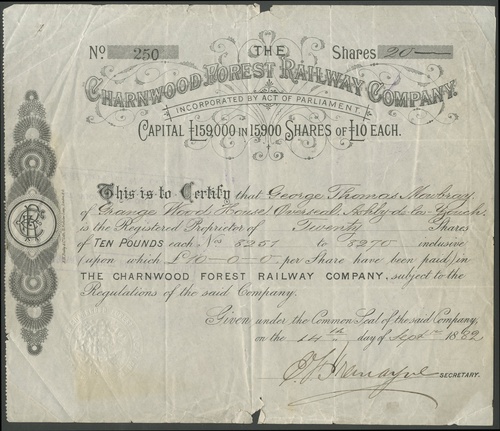 No. 250 THE Shares 20
CHARNWOOD FOREST RAILWAY COMPANY.
INCORPORATED BY ACT OF PARLIAMENT.
CAPITAL £159,000 IN 15900 SHARES OF £10 EACH.
This is to Certify that George Thomas Mowbray
of Grange Wood House Overseal Ashby de la Zouch
is the Registered Proprietor of Twenty Shares
of TEN POUNDS each Nos 5251 to 5270 inclusive
(upon which £10-0-0 per Share have been paid) in
THE CHARNWOOD FOREST RAILWAY COMPANY, subject to the
Regulations of the said Company.
Given under the Common Seal of the said Company,
on the 14th day of Sept 1882
SECRETARY.